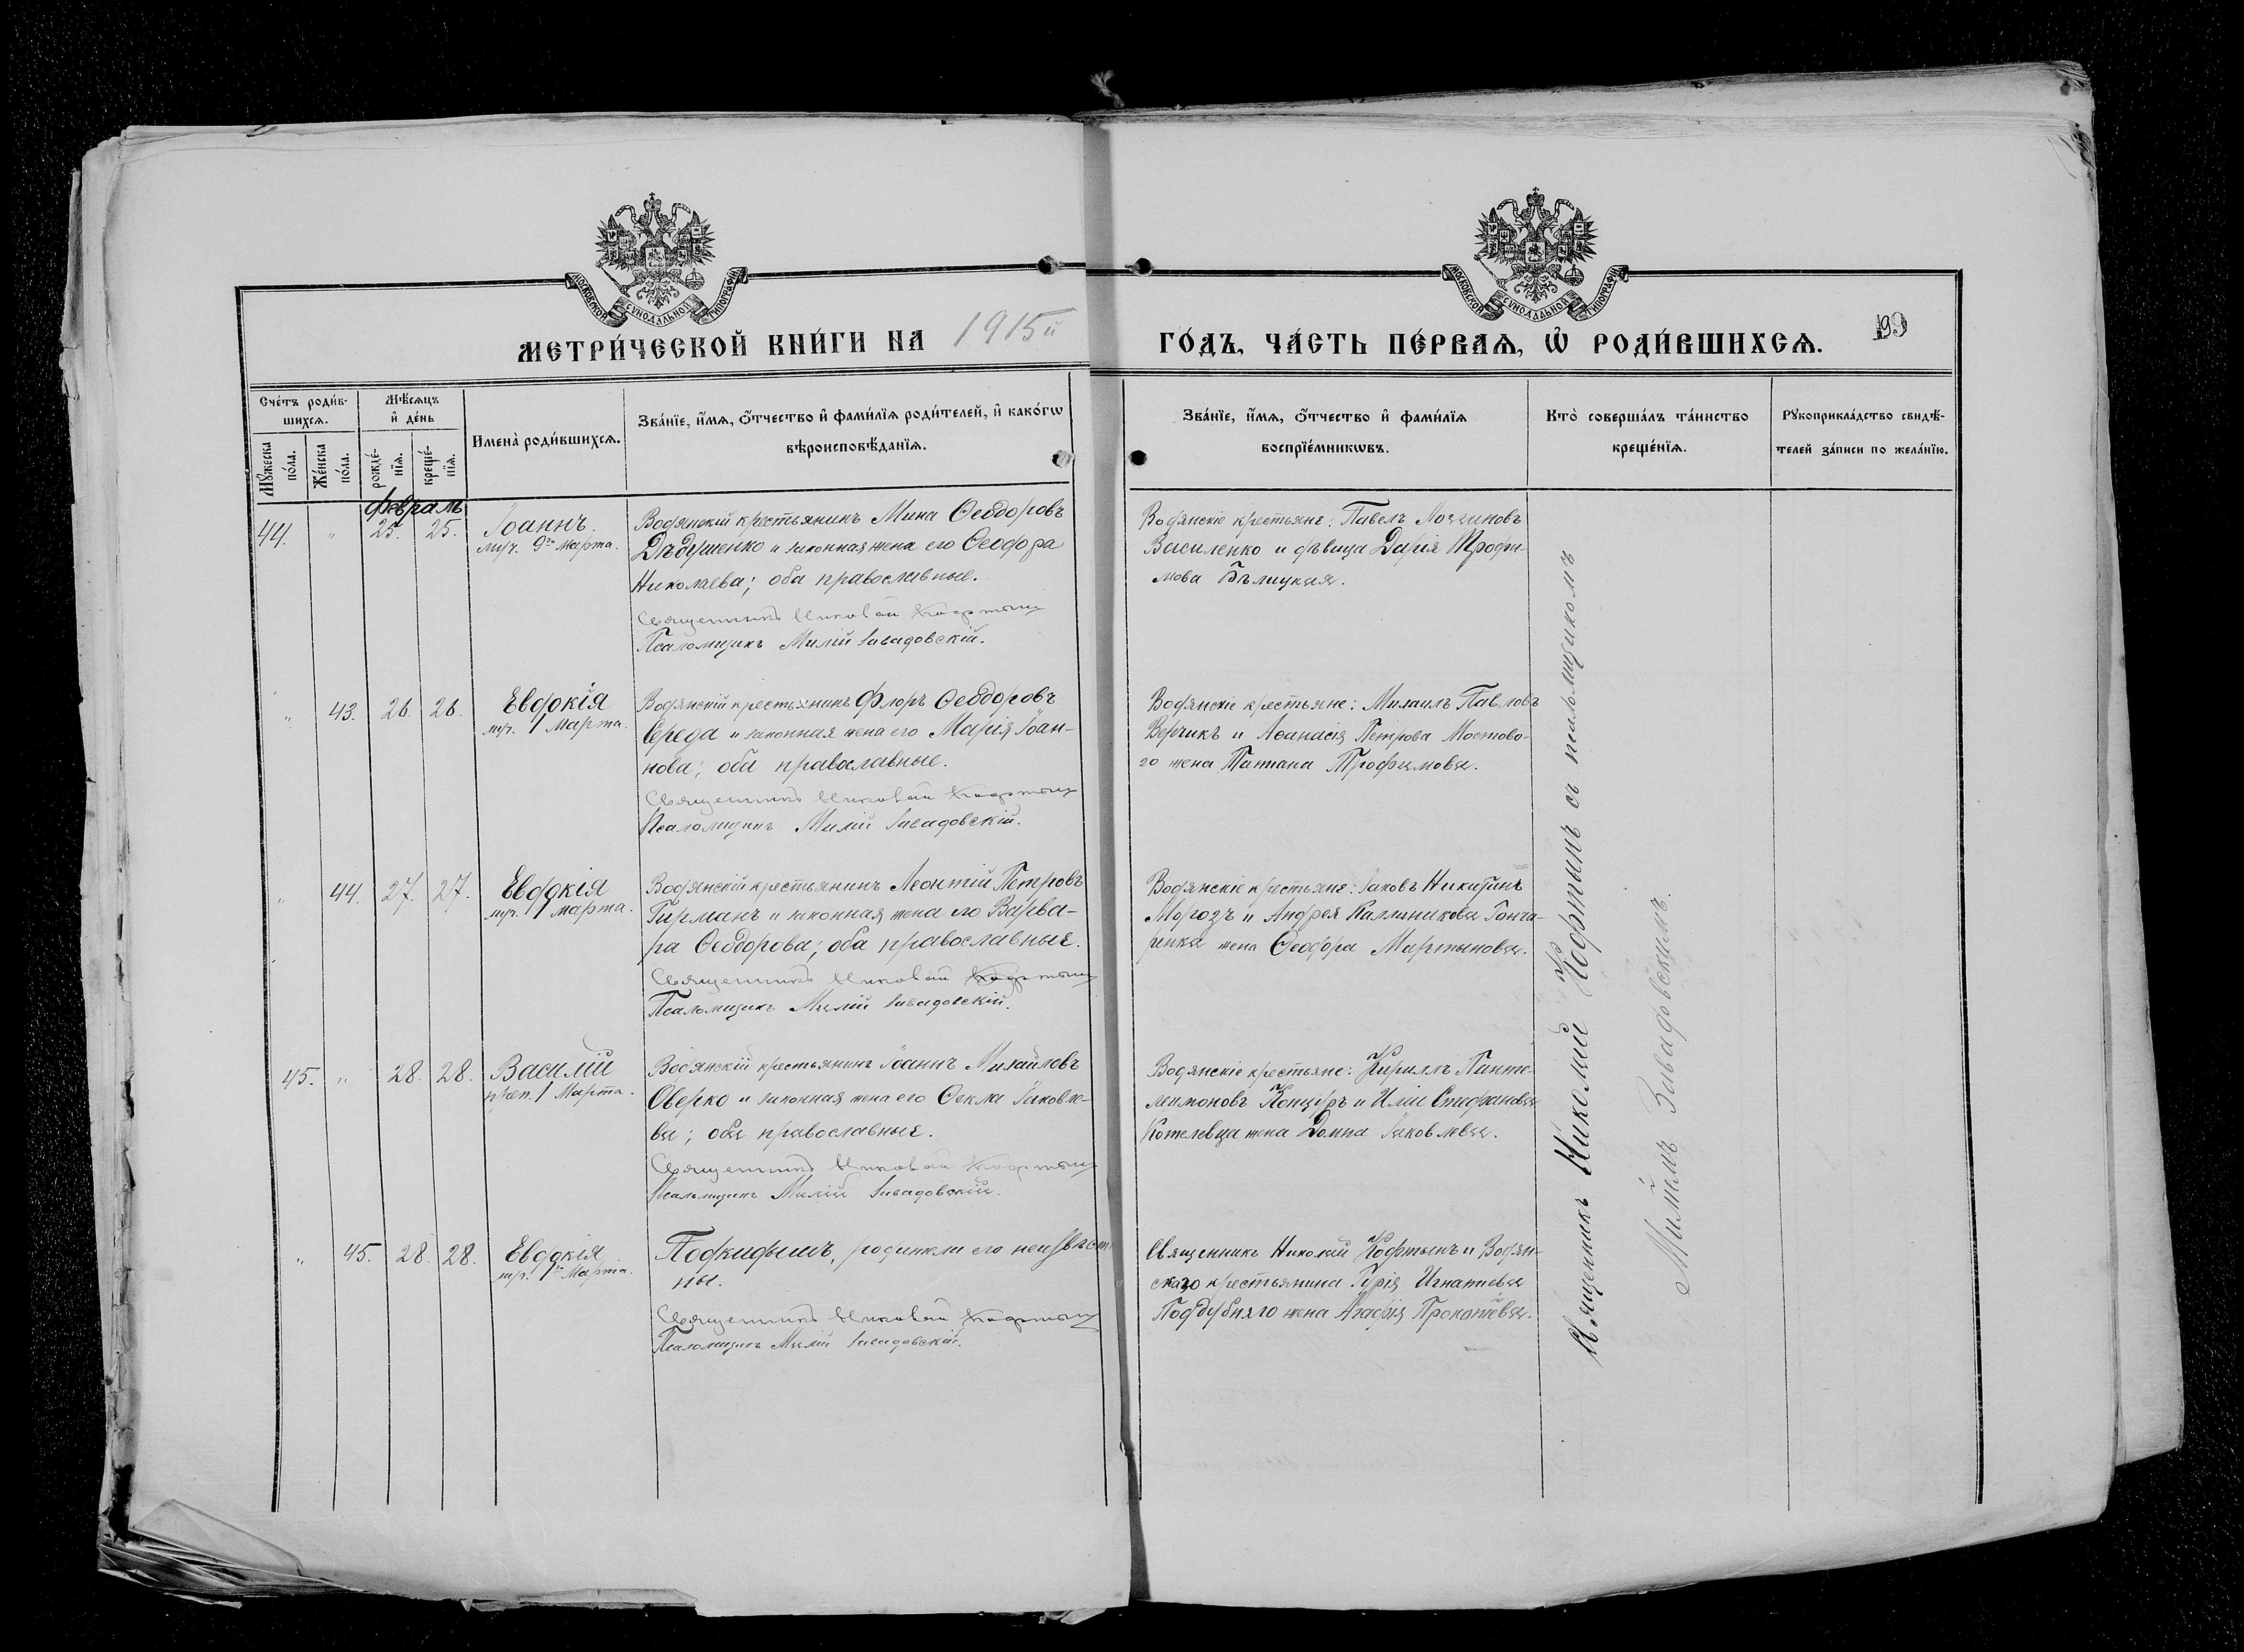 МОСКОВСКОЙ СУНОДАЛЬНОЙ ТИПОГРАФІИ
МОСКОВСКОЙ СУНОДАЛЬНОЙ ТИПОГРАФІИ
МЕТРИ́ЧЕСКОЙ КНИ́ГИ НА 1915й ГО́ДЪ, ЧА́СТЬ ПЕ́РВАѦ, Ѡ҆ РОДИ́ВШИХСѦ. 199
Сче́тъ роди́вшихсѧ.
Мꙋ́жеска по́ла.
Же́нска по́ла.
Мѣ́сѧцъ и҆ де́нь
рожде́нїѧ.
креще́нїѧ.
Имена̀ роди́вшихсѧ.
Зва́нїе, и҆́мѧ, ѻ҆́тчество и҆ фами́лїѧ роди́телей, и҆ како́гѡ
вѣроисповѣ́данїѧ.
Зва́нїе, и҆́мѧ, ѻ҆́тчество и҆ фами́лїѧ
воспрїе́мникѡвъ.
Кто̀ соверша́лъ та́инство
креще́нїѧ.
Рꙋкоприкла́дство свидѣ́-
телей за́писи по жела́нїю.
Февраль
44. " 25. 25. Іоаннъ.
муч. 9го Марта.
Водянскій крестьянинъ Мина Ѳеодоровъ
Дѣдушенко и законная жена его Ѳеодора
Николаева; оба православные.
Священникъ Николай Кофтынъ
Псаломщикъ Милій Завадовскій.
Водянскіе крестьяне: Павелъ Логгиновъ
Василенко и дѣвица Дарія Трофи-
мова Бѣлицкая.
" 43. 26. 26. Евдокія
муч. 1 Марта.
Водянскій крестьянинъ Флоръ Ѳеодоровъ
Середа и законная жена его Марія Іоан-
нова; оба православные.
Священникъ Николай Кофтынъ
Псаломщикъ Милій Завадовскій.
Водянскіе крестьяне: Михаилъ Павловъ
Верчикъ и Аѳанасія Петрова Мостово-
го жена Татіана Трофимова.
" 44. 27. 27. Евдокія
муч. 1 Марта.
Водянскій крестьянинъ Леонтій Петровъ
Гирманъ и законная жена его Варва-
ра Ѳеодорова; оба православные.
Священникъ Николай Кофтынъ
Псаломщикъ Милій Завадовскій.
Водянскіе крестьяне: Іаковъ Никитинъ
Морозъ и Андрея Каллиникова Гонча-
ренка жена Ѳеодора Мартынова.
45. " 28. 28. Василій
преп. 1 Марта.
Водянскій крестьянинъ Іоаннъ Михайловъ
Оверко и законная жена его Ѳекла Іаковле-
ва; оба православные.
Священникъ Николай Кофтынъ
Псаломщикъ Милій Завадовскій.
Водянскіе крестьяне: Кириллъ Панте-
леимоновъ Концуръ и Иліи Стефанова
Котелевца жена Домна Іаковлева.
" 45. 28. 28. Евдокія
мр. 1го Марта.
Подкидышъ, родители его неизвѣст-
ны.
Священникъ Николай Кофтынъ
Псаломщикъ Милій Завадовскій.
Священникъ Николай Кофтынъ и Водян-
скаго крестьянина Гурія Игнатіева
Поддубняго жена Агафія Прокопіева.
Священникъ Николай Кофтынъ съ псаломщикомъ
Миліемъ Завадовскимъ.